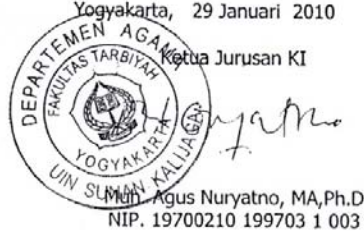 Yogyakarta, 29 Januari 2010
Ketua Jurusan KI
DEPARTEMEN AGAMA
FAKULTAS TARBIYAH
YOGYAKARTA
UIN SUNAN KALIJAGA
Muh. Agus Nuryatno, MA,Ph.D
NIP. 19700210 199703 1 003